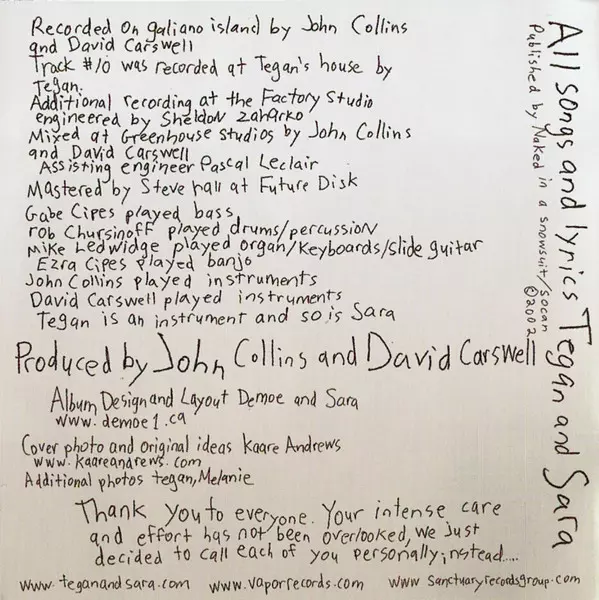 Recorded on galiano island by John Collins
and David Carswell
Track #10 was recorded at Tegan's house by
Tegan.
Additional recording at the Factory Studio
engineered by Sheldon Zaharko
Mixed at Greenhouse studios by John Collins
and David Carswell
Assisting engineer Pascal Leclair
Mastered by Steve Hall at Future Disk
Gabe Cipes played bass
rob Chursinoff played drums/percussion
Mike Ledwidge played organ/keyboards/slide guitar
Ezra Cipes played banjo
John Collins played instruments
David Carswell played instruments
Tegan is an instrument and so is Sara
Produced by John Collins and David Carswell
Album Design and Layout Demoe and Sara
www.demoe1.ca
Cover photo and original ideas Kaare Andrews
www.kaareandrews.com
Additional photos tegan, Melanie
Thank you to everyone. Your intense care
and effort has not been overlooked, we just
decided to call each of you personally, instead.....
www.teganandsara.com www.vaporrecords.com www.sanctuaryrecordsgroup.com
All songs and lyrics Tegan and Sara
Published by Naked in a snowsuit/socan
©2002